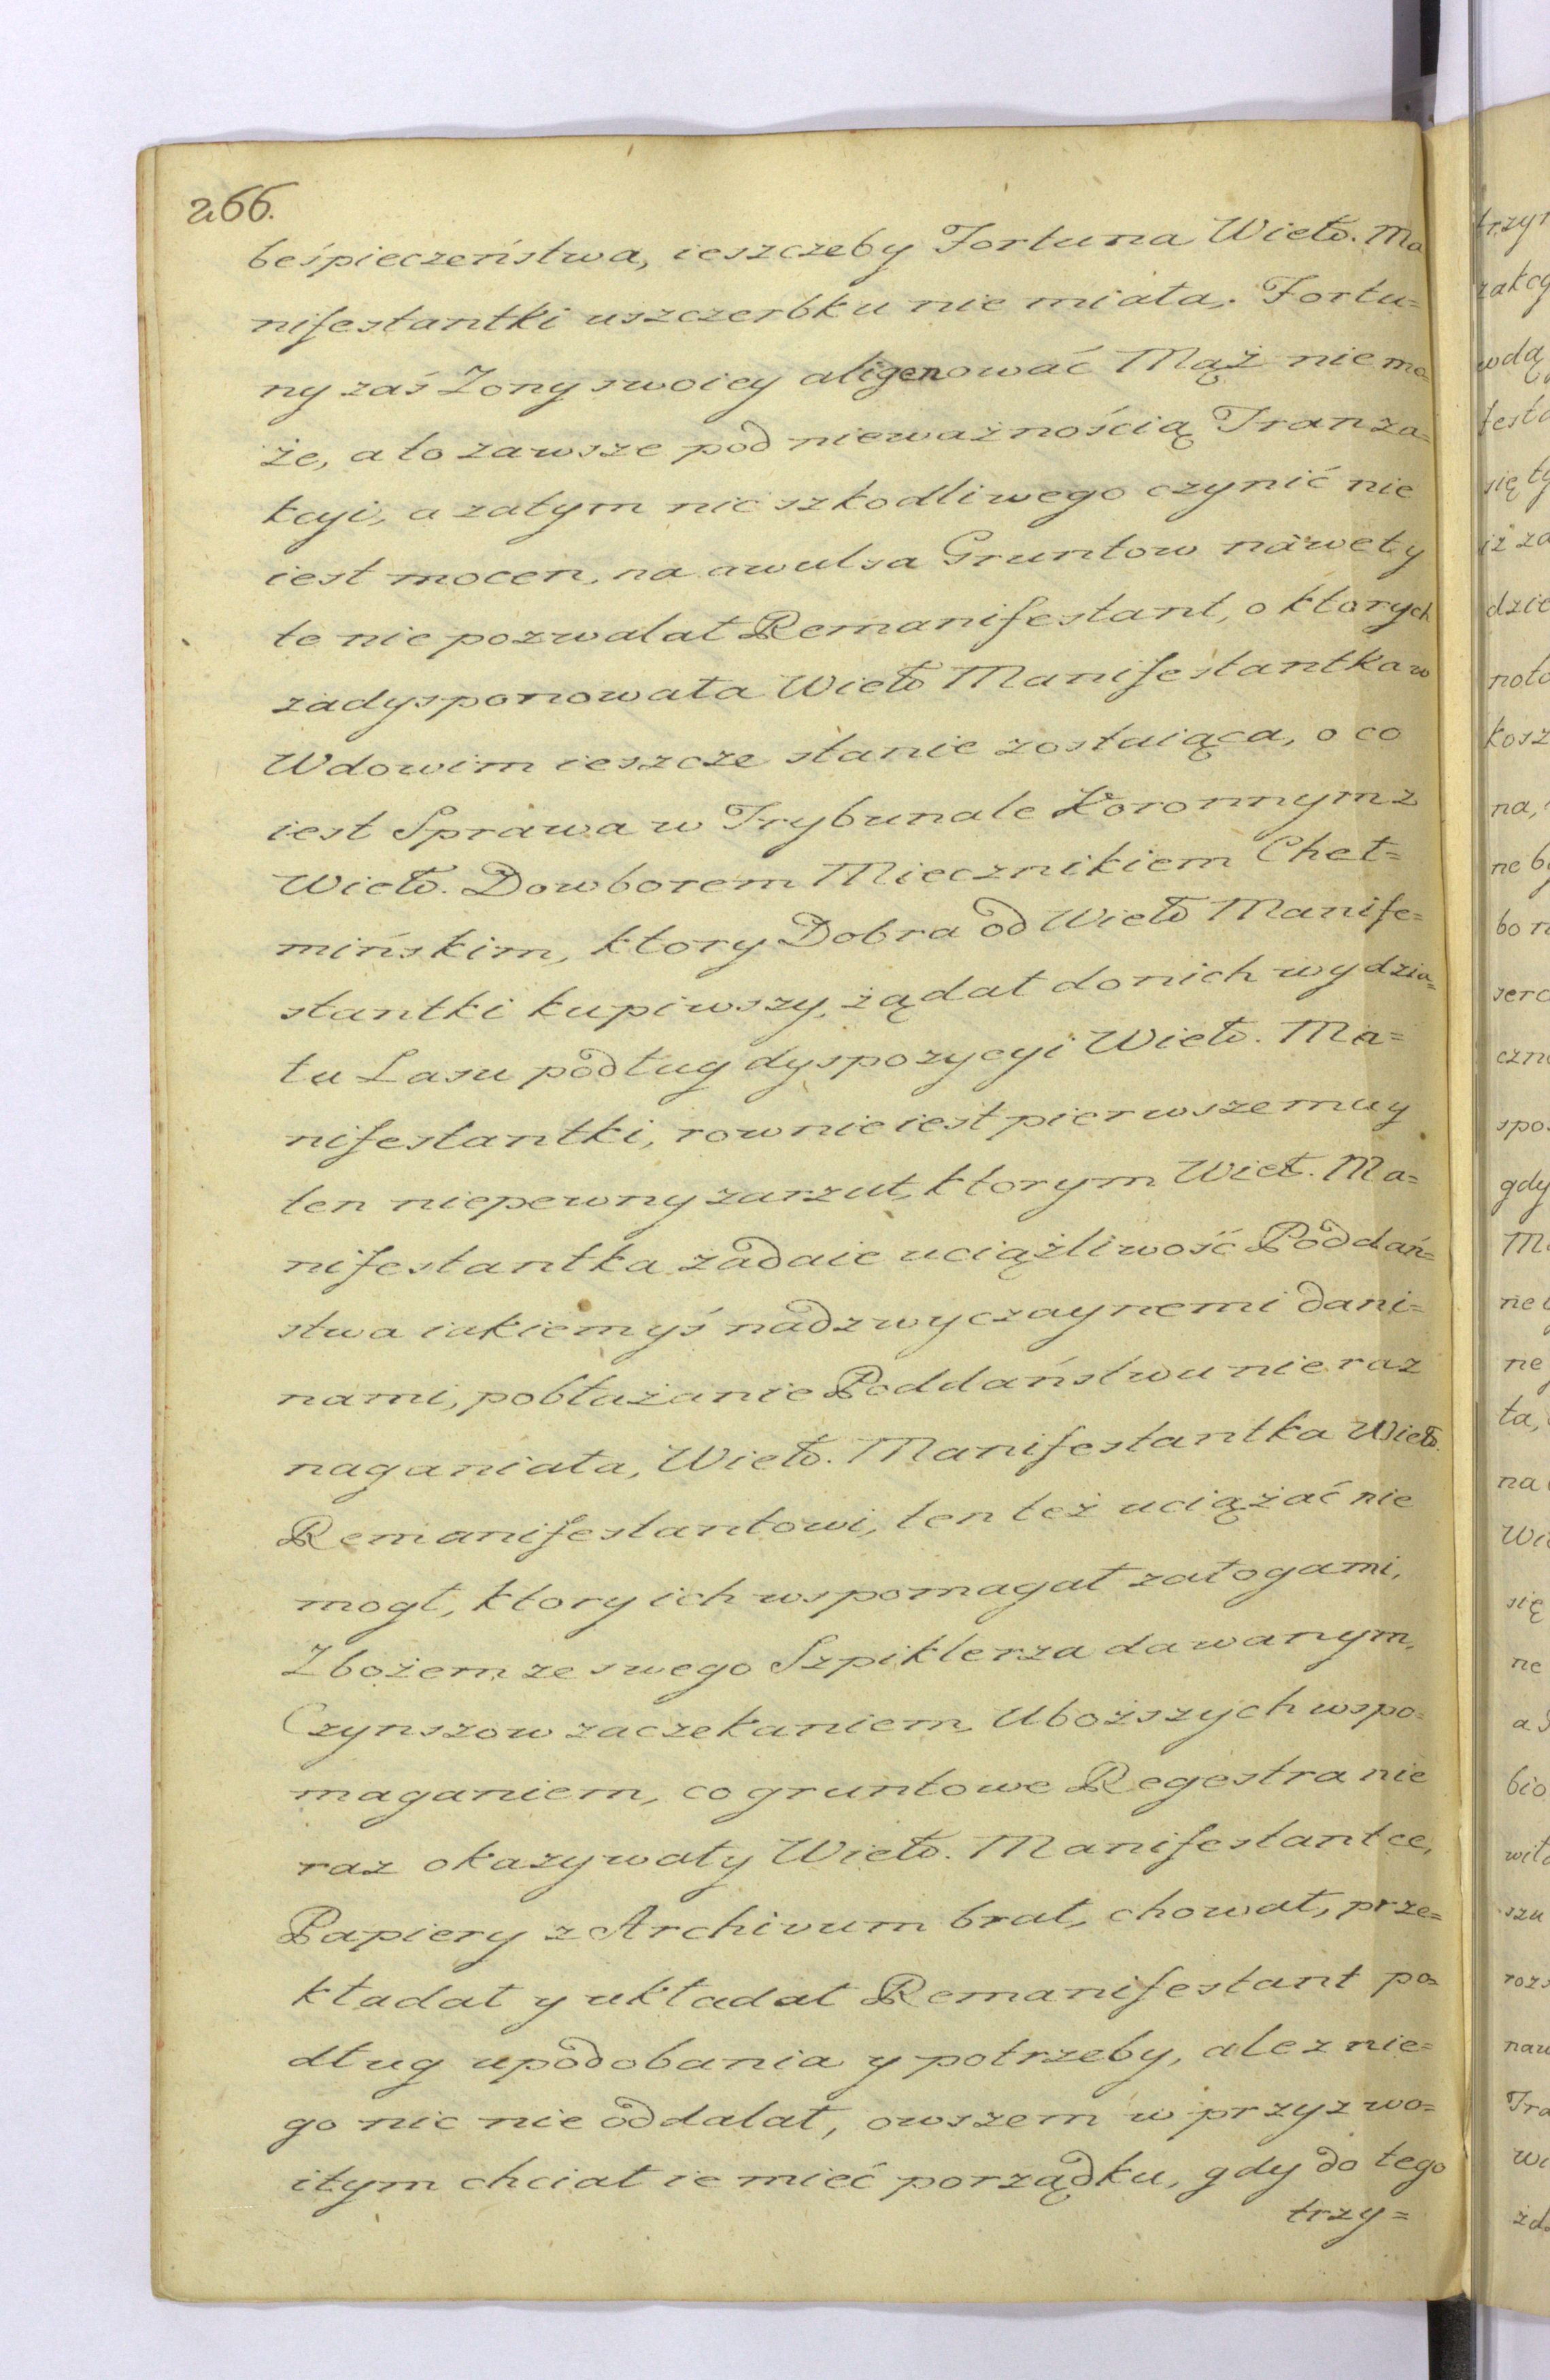 266.
beśpieczeństwa, ieszczeby Fortuna Wielo. Ma
nifestantki uszczerbku nie miała, Fortu=
ny zaś Zony swoiey aligenować Mąż nie mo=
że, a to zawsze pod nieważnością Tranza=
kcyi, a zatym nic szkodliwego czynić nie
iest mocen, na awulsa Gruntow nawet y
te nie pozwalał Remanifestant, o ktorych
zadysponowała Wielo Manifestantka w
Wdowim ieszcze stanie zostaiąca, o co
iest Sprawa w Trybunale Koronnym z
Wielo. Dowborem Miecznikiem Cheł=
mińskim, ktory Dobra od Wielo Manife=
stantki kupiwszy, żądał do nich wydzia=
łu Lasu podług dyspozycyi Wielo. Ma=
nifestantki, rownie iest pierwszemu y
ten niepewny zarzut, ktorym Wiel. Ma=
nifestantka zadaie uciążliwość Poddań=
stwa iakiemyś nadzwyczaynemi dani=
nami, pobłażanie Poddaństwu nie raz
naganiała, Wielo. Manifestantka Wielo.
Remanifestantowi, ten też uciążać nie
mogł, ktory ich wspomagał załogami,
Zbożem ze swego Szpiklerza dawanym,
Czynszow zaczekaniem, Uboższych wspo=
maganiem, co gruntowe Regestra nie
raz okazywały Wielo. Manifestantce,
Papiery z Archivum brał, chował, prze=
kładał y układał Remanifestant po=
dług upodobania y potrzeby, ale z nie=
go nic nie oddalał, owszem w przyzwo=
itym chciał ie mieć porządku, gdy do tego
trzy=